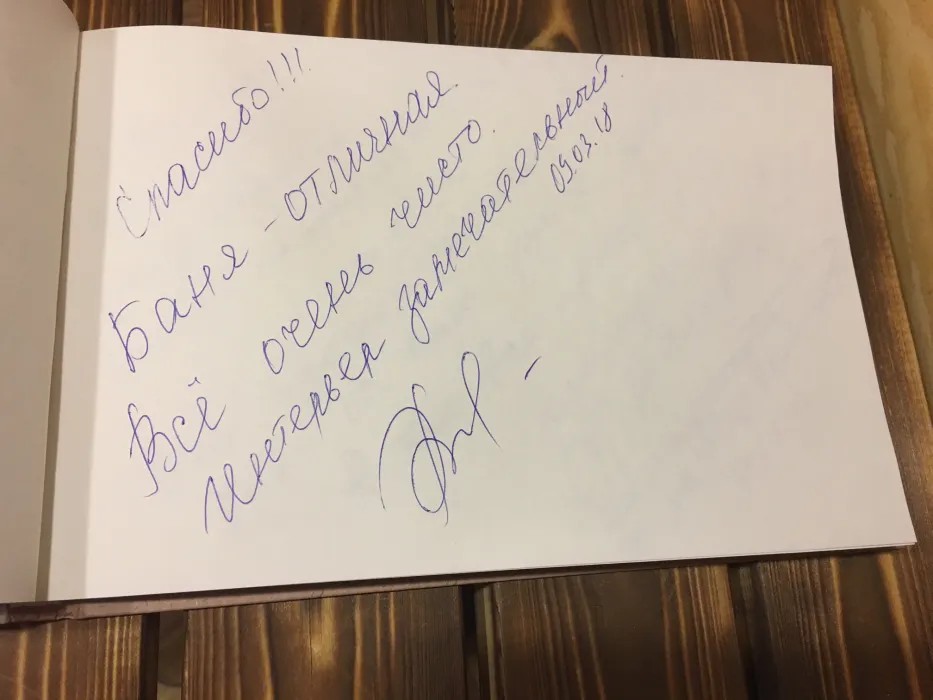 Спасибо!!!
Баня - отличная.
Всё очень чисто.
Интерьер замечательный.
09.03.18